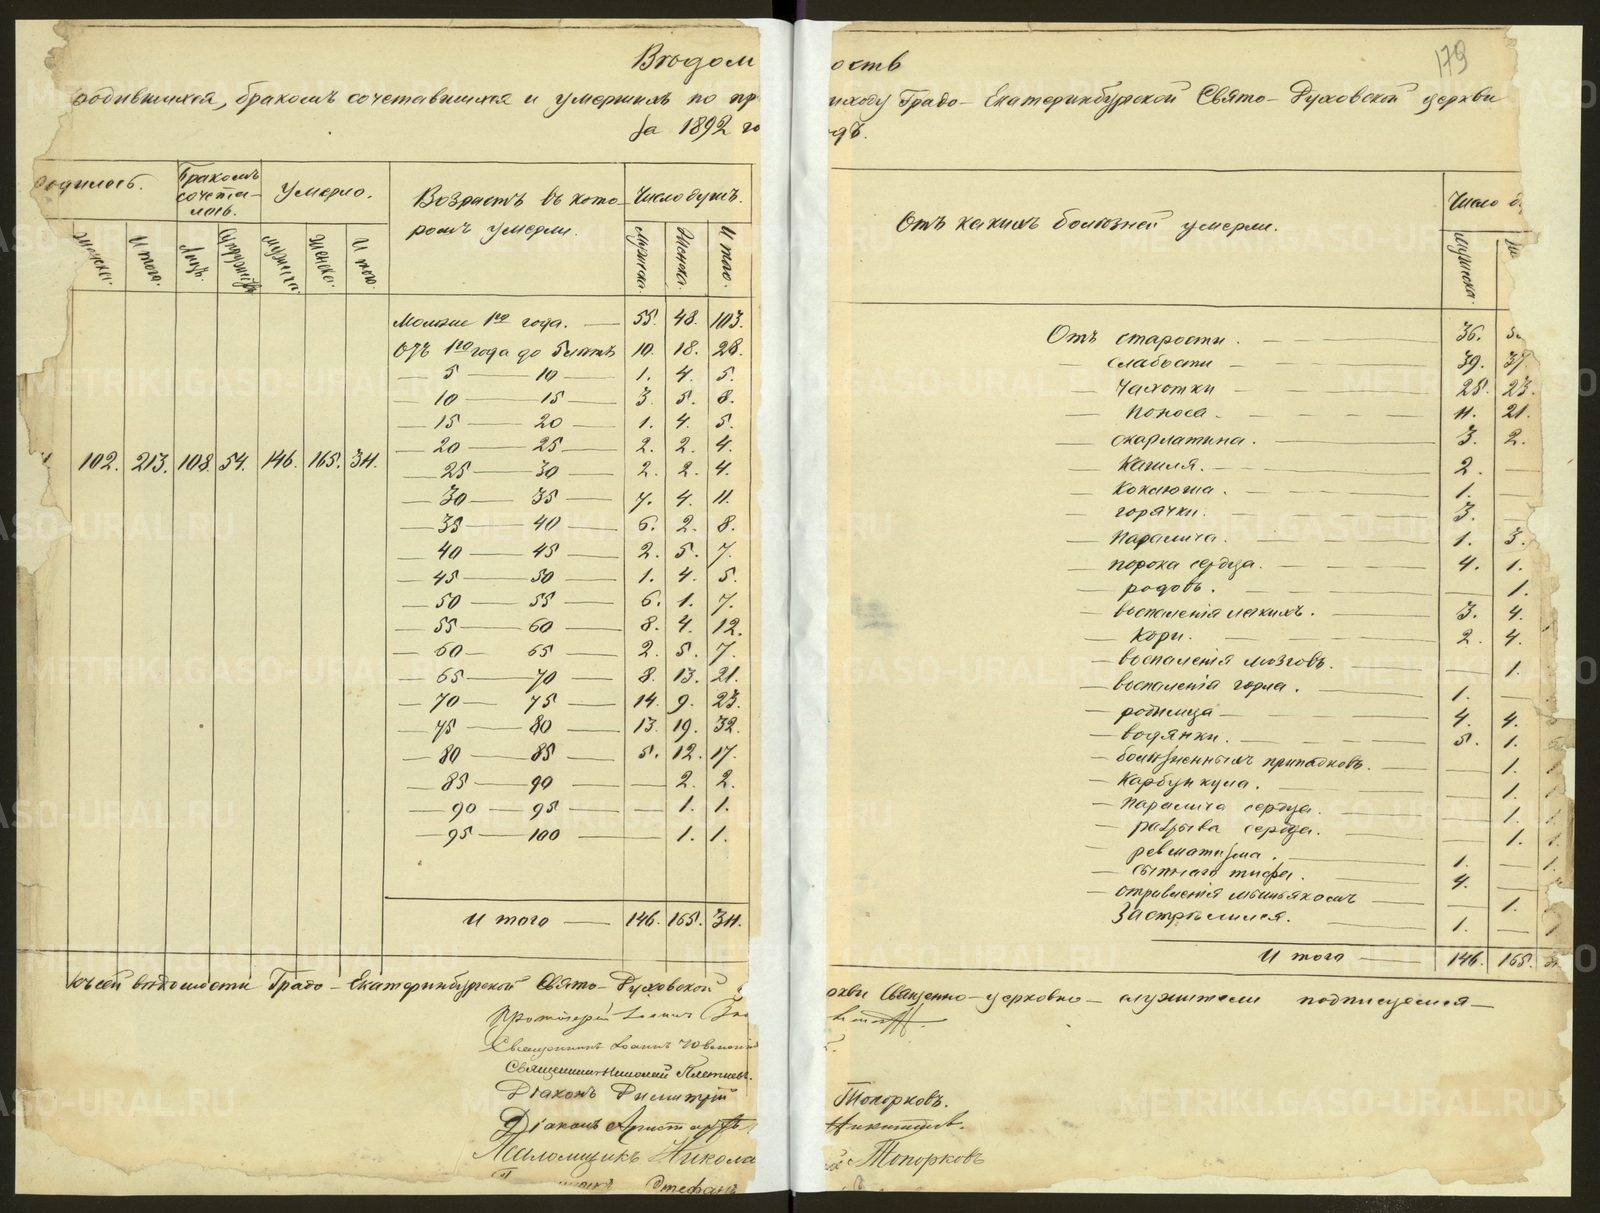 Вѣдомость
родившихся, бракомъ сочетавшихся и умершихъ по приходу Градо-Екатеринбургской Свято-Духовской церкви
За 1892 годъ.
179
Родилось. Бракомъ сочета-лось. Умерло. Возрастъ въ кото-ромъ умерли. Число душъ.
Женска. Итого. Лицъ. Супружествъ Мужеска. Женска. Итого. Мужеска. Женска. Итого.
102. 213. 108. 54. 146. 165. 311.
Моложе 1го года. 55. 48. 103.
Отъ 1го года до 5 лѣтъ 10. 18. 28.
5 — 10 — 1. 4. 5.
10 — 15 — 3. 5. 8.
15 — 20 — 1. 4. 5.
20 — 25 — 2. 2. 4.
25 — 30 — 2. 2. 4.
30 — 35 — 7. 4. 11.
35 — 40 — 6. 2. 8.
40 — 45 — 2. 5. 7.
45 — 50 — 1. 4. 5.
50 — 55 — 6. 1. 7.
55 — 60 — 8. 4. 12.
60 — 65 — 2. 5. 7.
65 — 70 — 8. 13. 21.
70 — 75 — 14. 9. 23.
75 — 80 — 13. 19. 32.
80 — 85 — 5. 12. 17.
85 — 90 — — 2. 2.
90 — 95 — — 1. 1.
95 — 100 — — 1. 1.
Итого — 146. 165. 311.
Отъ какихъ болѣзней умерли. Число
Мужеска.
Отъ старости. 36.
— слабости — 39. 37.
— Чахотки 25. 23.
— Поноса — 11. 21.
— скарлатина. — 3. 2.
— Кашля. — 2. —
— Коклюша. — 1. —
— горячки. — 3.
— Паралича. — 1. 3.
— порока сердца. — 4. 1.
— родовъ. — — 1.
— воспаленія легкихъ. — 3. 4.
— Кори. — 2. 4.
— воспаленія мозговъ. — — 1.
— воспаленія горла. — 1. —
— родимца — 4. 4.
— водянки. — 5. 1.
— болѣзненныхъ припадковъ. — — 1.
— Карбункула. — — 1.
— Паралича сердца. — — 1.
— разрыва сердца. — — 1.
— ревматизма. — 1. —
— сыпнаго тифа. — 4. —
— отравленія мышьякомъ — — 1.
— Застрѣлился. — 1. —
Итого — 146. 165.
Къ сей вѣдомости Градо-Екатеринбургской Свято-Духовской церкви Священно-церковно-служители подписуемся —
Протоіерей Іоаннъ
Священникъ Іоаннъ
Священникъ Николай Плетневъ.
Діаконъ Димитрій Топорковъ.
Діаконъ Аристархъ Никитинъ.
Псаломщикъ Николай Топорковъ
Стефанъ
METRIKI.GASO-URAL.RU